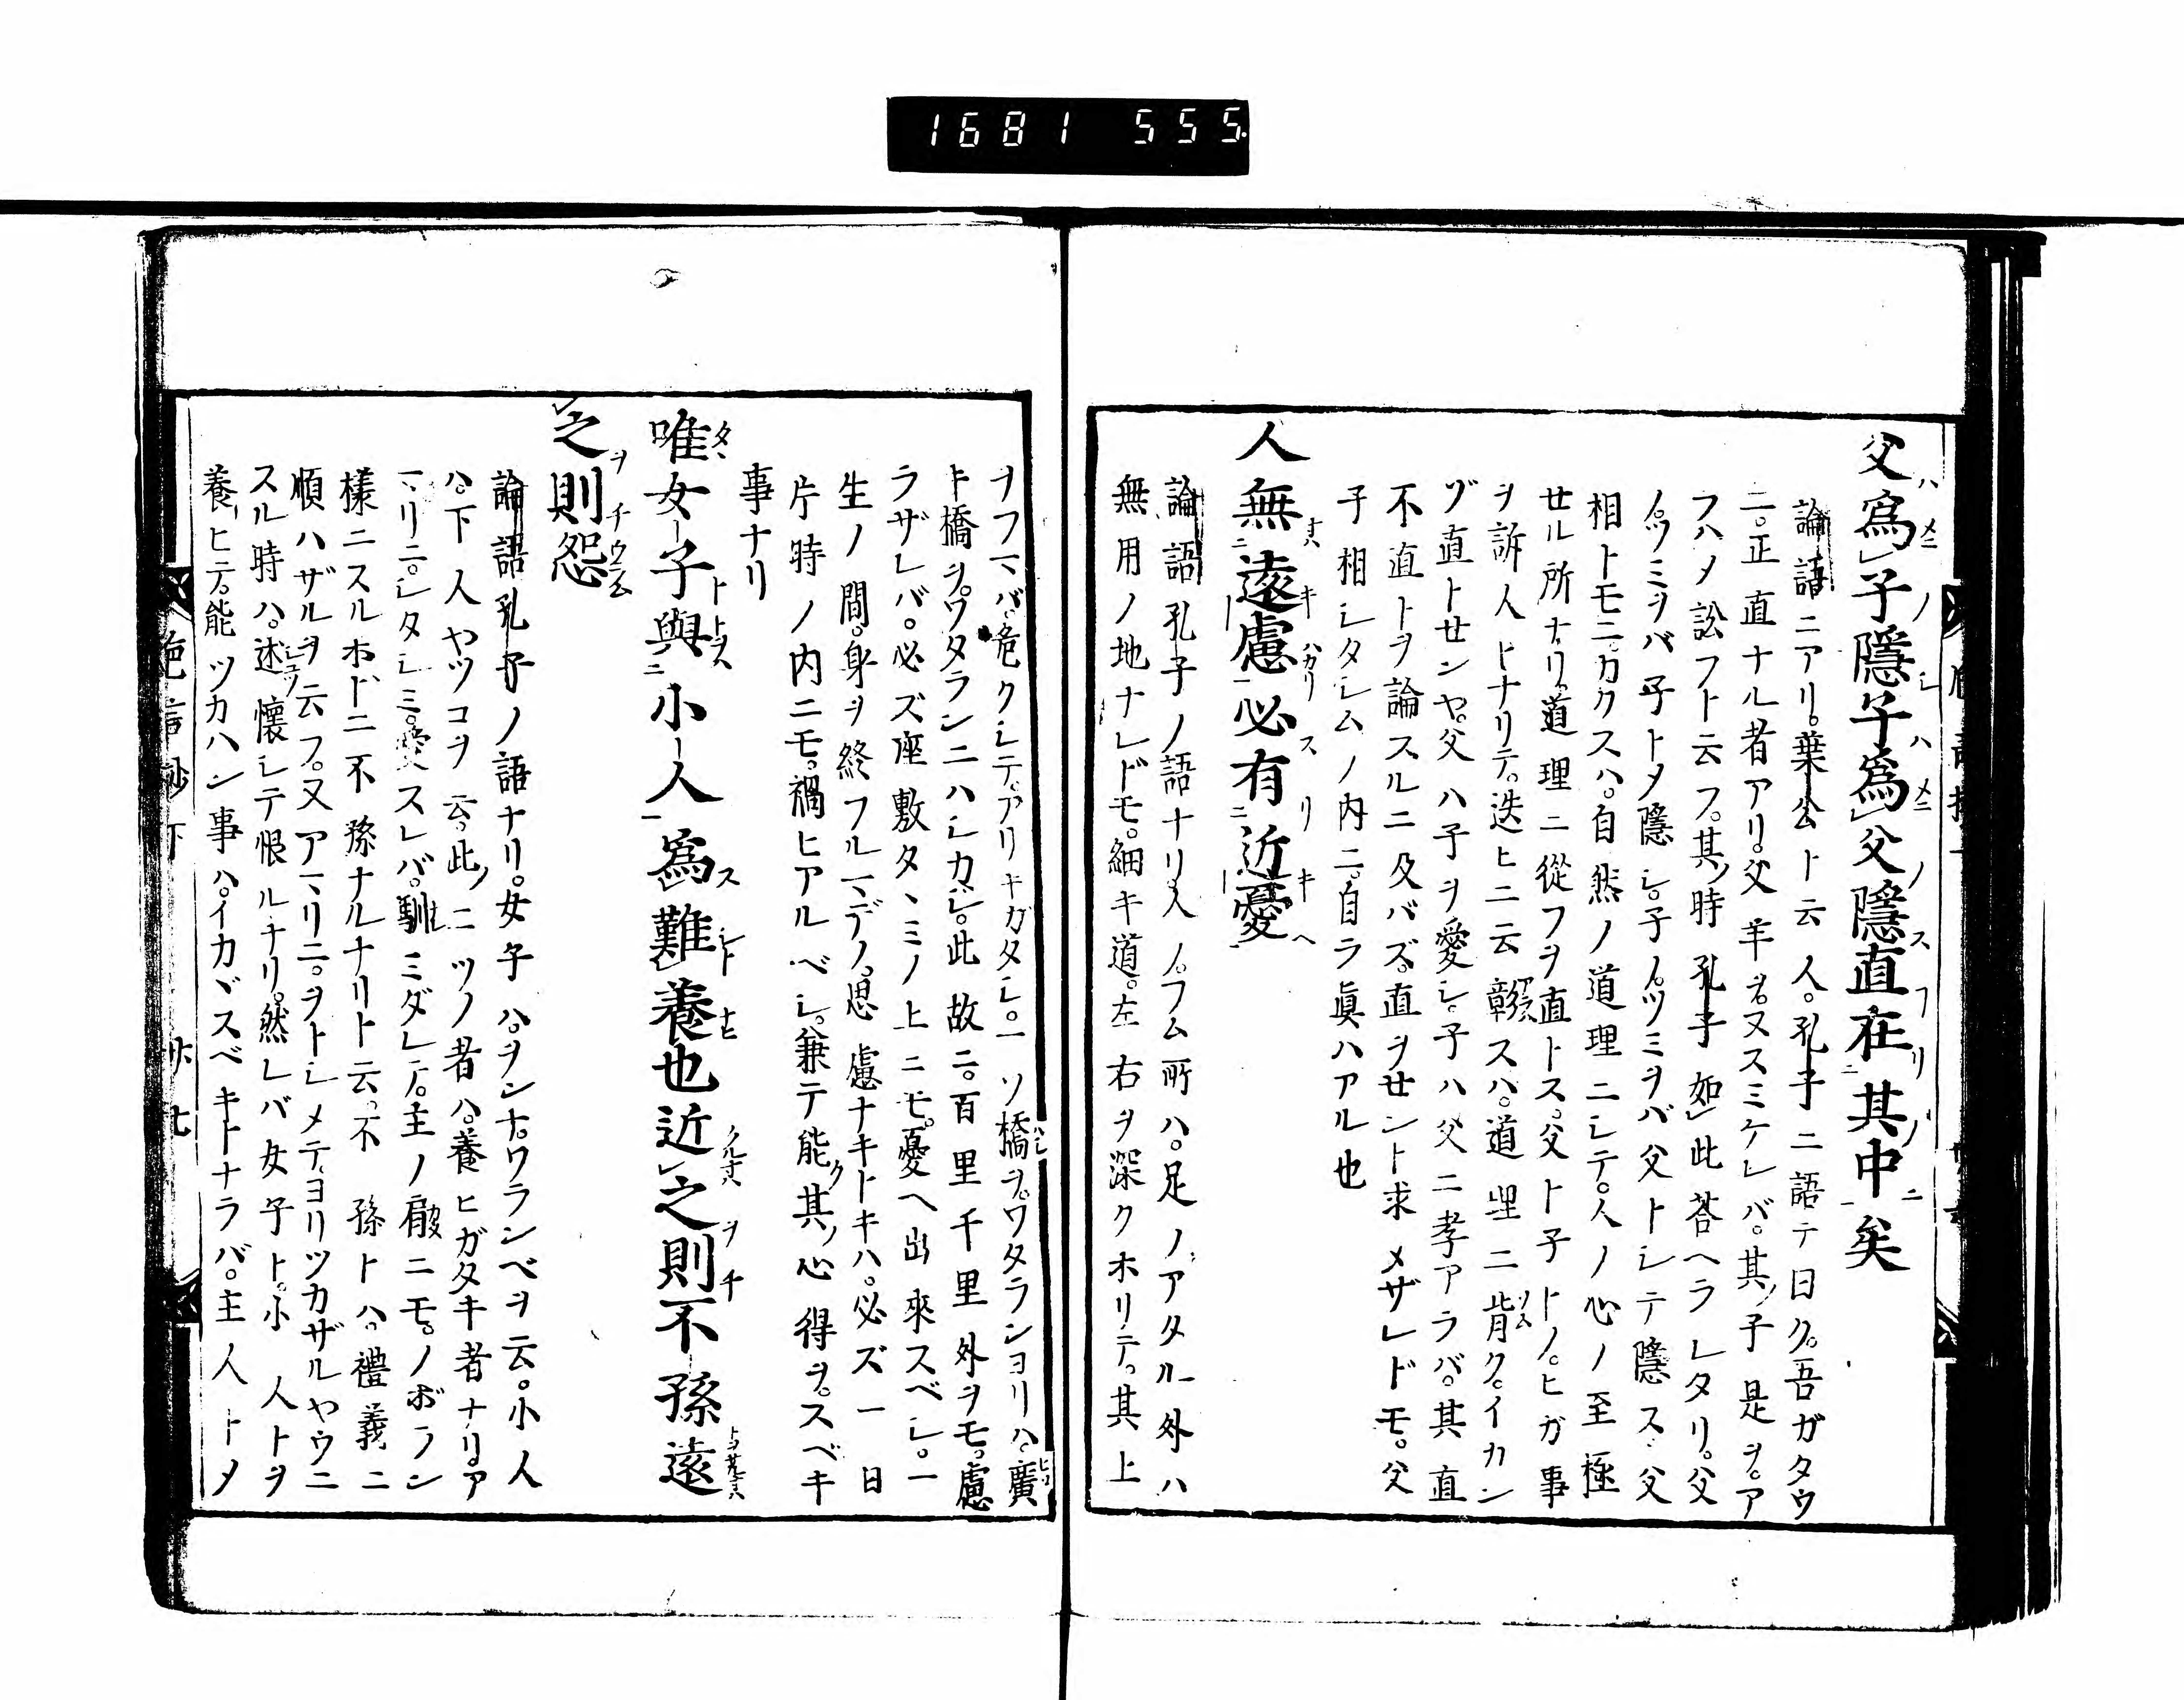 1681 555
父爲子隱子爲父隱直在其中矣
論語ニアリ。葉公ト云人。孔子ニ語テ曰ク。吾ガタウ
ニ。正直ナル者アリ。父羊ヲ。ヌスミケレバ。其ノ子是ヲ。ア
フハメ訟フト云フ。其ノ時孔子如此答ヘラレタリ。父
ノ。ツミヲバ子トメ隱シ。子ノ。ツミヲバ父トシテ隱ス。父
相トモニ。カクスハ。自然ノ道理ニシテ。人ノ心ノ至極
セル所ナリ。道理ニ從フヲ直トス。父ト子トノ。ヒガ事
ヲ訴人トナリテ。迭ヒニ云彰スハ。道理ニ背ク。イカン
ゾ直トセンヤ。父ハ子ヲ愛シ。子ハ父ニ孝アラバ。其直
不直トヲ論スルニ及バズ。直ヲセント求メザレドモ。父
子相シタシムノ内ニ。自ラ眞ハアル也
人無遠慮必有近憂
論語孔子ノ語ナリ。人ノ。フム所ハ。足ノアタル外ハ
無用ノ地ナレドモ。細キ道。左右ヲ深クホリテ。其上
ヲフマバ。危クシテ。アリキガタシ。一ソ橋ヲ。ワタランヨリハ。廣
ト橋ヲ。ワタランニハシカジ。此故ニ。百里千里外ヲモ。慮
ラザレバ。必ズ座敷タヽミノ上ニモ。憂ヘ出來スベシ。一
生ノ間。身ヲ終フルマデノ。思慮ナキトキハ。必ズ一日
片時ノ内ニモ。禍ヒアルベシ。兼テ能ク其ノ心得ヲ。スベキ
事ナリ
唯女子與小人爲難養也近之則不孫遠
之則怨
論語孔子ノ語ナリ。女子ハ。ヲンナ。ワランベヲ云。小人
ハ。下人ヤツコヲ云。此ノ二ツノ者ハ。養ヒガタキ者ナリ。ア
マリニ。シタシミ。愛スレバ。馴ミダレテ。主ノ前ニモ。ノボラン
樣ニスルホドニ不孫ナルナリト云。不孫トハ。禮義ニ
順ハザルヲ云フ。又アマリニ。ヲトシメテ。ヨリツカザルヤウニ
スル時ハ。述懷シテ恨ルナリ。然レバ女子ト。小人トヲ
養ヒテ。能ツカハン事ハ。イカヾスベキトナラバ。主人トメ